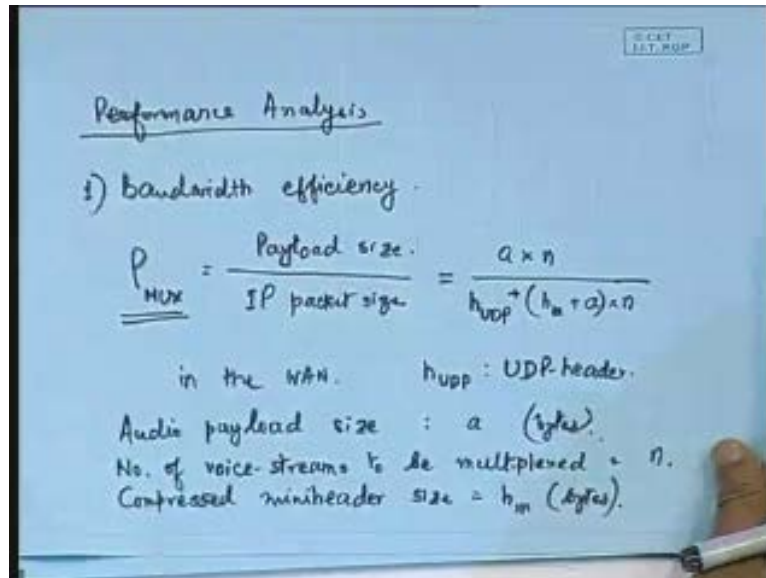 © CET
I.I.T. KGP
Performance Analysis
1) Bandwidth efficiency.
ρ_MUX = Payload size. / IP packet size = a × n / h_UDP + (h_m + a) × n
in the WAN. h_UDP : UDP-header.
Audio payload size : a (bytes).
No. of voice-streams to be multiplexed = n.
Compressed miniheader size = h_m (bytes).